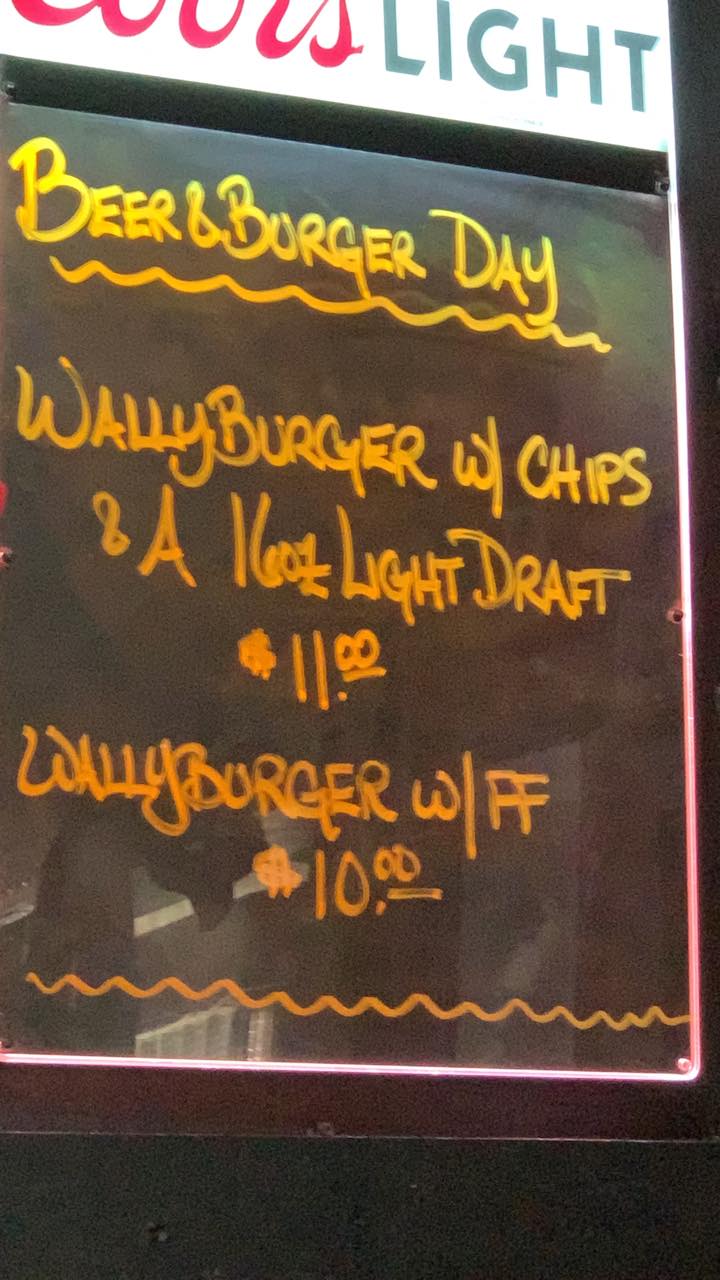 Coors LIGHT
BEER & BURGER DAY
WALLYBURGER W/ CHIPS
& A 16oz LIGHT DRAFT
$11.00
WALLYBURGER W/ FF
$10.00